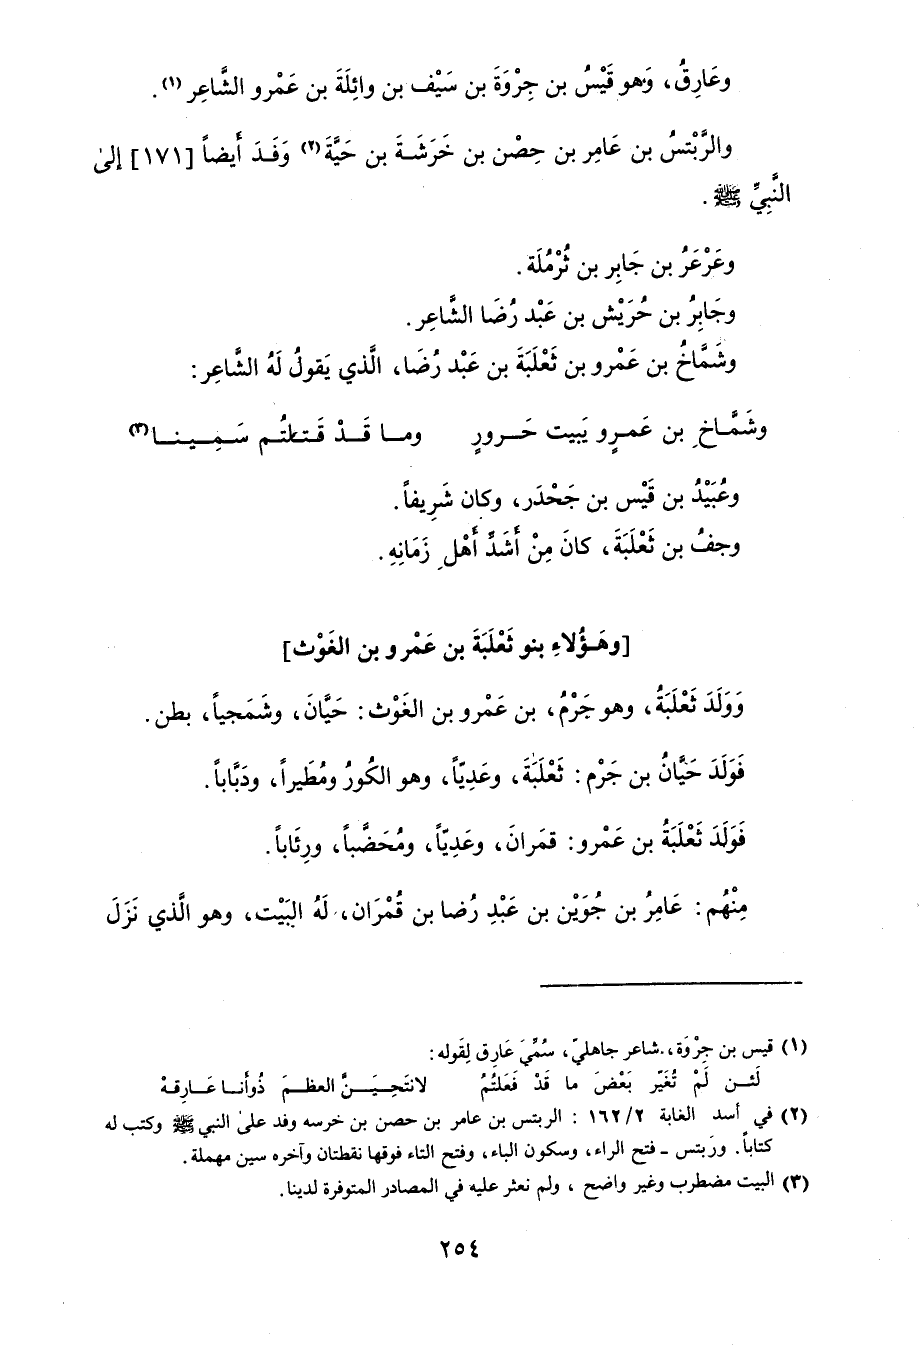 وعَارِقُ، وَهو قَيْسُ بن جِرْوَةَ بن سَيْف بن وائِلَةَ بن عَمْرو الشَّاعِر (١).
والرَّبْتسُ بن عَامِر بن حِصْن بن خَرَشَةَ بن حَيَّةَ(٢) وَفَدَ أَيضاً [١٧١] إلىٰ
النَّبِيِّ ﷺ.
وعَرْعَرُ بن جَابِر بن ثُرْمُلَة.
وجَابِرُ بن حُرَيْش بن عَبْد رُضَا الشَّاعِر.
وشَمَّاخُ بن عَمْرو بن ثَعْلَبَةَ بن عَبْد رُضَا، الَّذي يَقولُ لَهُ الشَّاعِر:
وشَمَّاخِ بن عَمرٍو يَبيت حَرورٍ وما قَدْ قَتلتُم سَمِينا(٣)
وعُبَيْدُ بن قَيْس بن جَحْدَر، وكان شَرِيفاً.
وجفُ بن ثَعْلَبَةَ، كانَ مِنْ أَشَدِّ أَهْلِ زَمَانِهِ.
[وهَؤُلاءِ بنو ثَعْلَبَةَ بن عَمْرو بن الغَوْث]
وَوَلَدَ ثَعْلَبَةُ، وهو جَرْمُ، بن عَمْرو بن الغَوْث: حَيَّانَ، وشَمَجياً، بطن.
فَوَلَدَ حَيَّانُ بن جَرْم: ثَعْلَبَةَ، وعَدِيّاً، وهو الكُورُ ومُطَيراً، ودَبَّاباً.
فَوَلَدَ ثَعْلَبَةُ بن عَمْرو: قمَرانَ، وعَدِيّاً، ومُخَضَّباً، ورِئَاباً.
مِنْهُم: عَامِرُ بن جُوَيْن بن عَبْدِ رُضا بن قُمْرَان، لَهُ البَيْت، وهو الَّذي نَزَلَ
(١) قيس بن جِرْوَة، شاعر جاهليّ، سُمِّيَ عَارِق لِقَوله:
لَئن لَمْ تُغَيّر بَعْضَ ما قَدْ فَعَلتُمُ لانتَحِيَنَّ العظمَ ذُوأَنا عَارِقهْ
(٢) في أسد الغابة ١٦٢/٢ : الربتس بن عامر بن حصن بن خرسه وفد علىٰ النبي ﷺ وكتب له
كتاباً. ورَبتس ـ فتح الراء، وسكون الباء، وفتح التاء فوقها نقطتان وآخره سين مهملة.
(٣) البيت مضطرب وغير واضح ، ولم نعثر عليه في المصادر المتوفرة لدينا.
٢٥٤